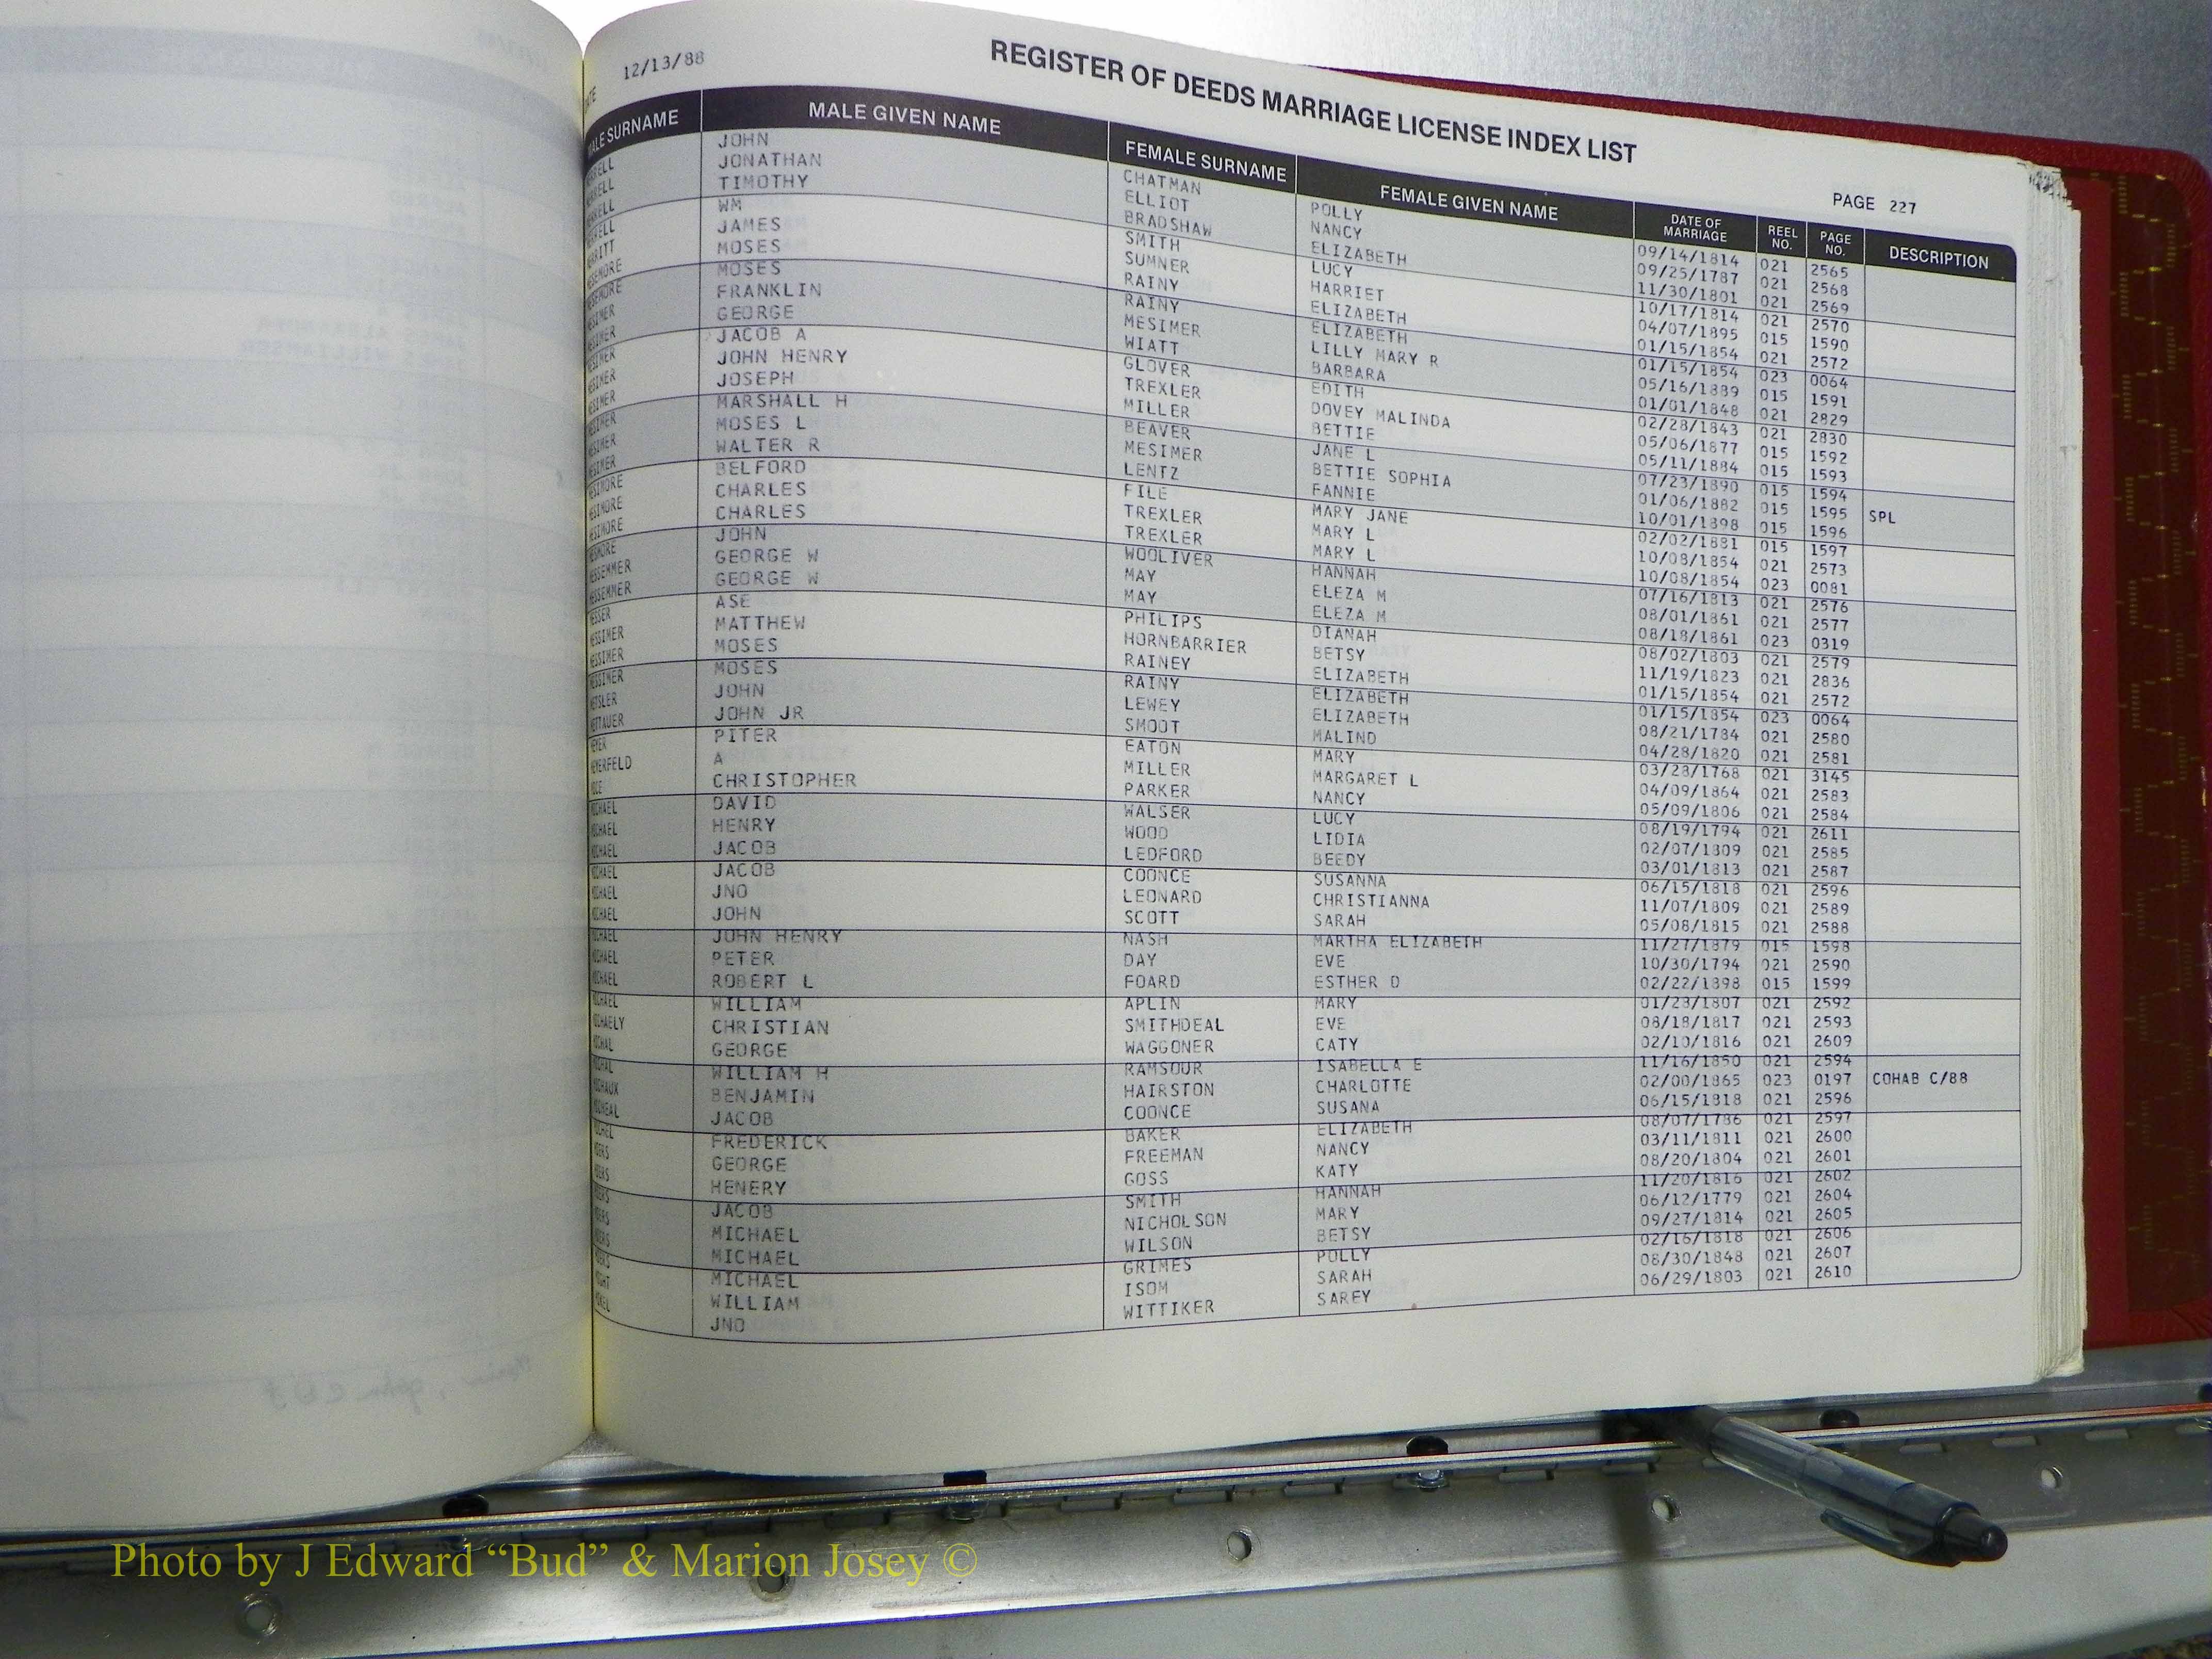 12/13/88
REGISTER OF DEEDS MARRIAGE LICENSE INDEX LIST
PAGE 227
MALE SURNAME MALE GIVEN NAME FEMALE SURNAME FEMALE GIVEN NAME DATE OF MARRIAGE REEL NO. PAGE NO. DESCRIPTION
JOHN CHATMAN POLLY 09/14/1814 021 2565
JONATHAN ELLIOT NANCY 09/25/1787 021 2568
TIMOTHY BRADSHAW ELIZABETH 11/30/1801 021 2569
WM SMITH LUCY 10/17/1814 021 2570
JAMES SUMNER HARRIET 04/07/1895 015 1590
MOSES RAINY ELIZABETH 01/15/1854 021 2572
MOSES RAINY ELIZABETH 01/15/1854 023 0064
MESIMER FRANKLIN MESIMER LILLY MARY R 05/16/1889 015 1591
MESIMER GEORGE WIATT BARBARA 01/01/1848 021 2829
MESIMER JACOB A GLOVER EDITH 02/28/1843 021 2830
MESIMER JOHN HENRY TREXLER DOVEY MALINDA 05/06/1877 015 1592
MESIMER JOSEPH MILLER BETTIE 05/11/1884 015 1593
MESIMER MARSHALL H BEAVER JANE L 07/23/1890 015 1594
MESIMER MOSES L MESIMER BETTIE SOPHIA 01/06/1882 015 1595 SPL
MESIMER WALTER R LENTZ FANNIE 10/01/1898 015 1596
MESIMORE BELFORD FILE MARY JANE 02/02/1881 015 1597
MESIMORE CHARLES TREXLER MARY L 10/08/1854 021 2573
MESIMORE CHARLES TREXLER MARY L 10/08/1854 023 0081
JOHN WOOLIVER HANNAH 07/16/1813 021 2576
MESSEMMER GEORGE W MAY ELEZA M 08/01/1861 021 2577
MESSEMMER GEORGE W MAY ELEZA M 08/18/1861 023 0319
MESSER ASE PHILIPS DIANAH 08/02/1803 021 2579
MESSIMER MATTHEW HORNBARRIER BETSY 11/19/1823 021 2836
MESSIMER MOSES RAINEY ELIZABETH 01/15/1854 021 2572
MESSIMER MOSES RAINY ELIZABETH 01/15/1854 023 0064
METSLER JOHN LEWEY ELIZABETH 08/21/1784 021 2580
METTAUER JOHN JR SMOOT MALIND 04/28/1820 021 2581
MEYER PITER EATON MARY 03/28/1768 021 3145
MEYERFELD A MILLER MARGARET L 04/09/1864 021 2583
CHRISTOPHER PARKER NANCY 05/09/1806 021 2584
MICHAEL DAVID WALSER LUCY 08/19/1794 021 2611
MICHAEL HENRY WOOD LIDIA 02/07/1809 021 2585
MICHAEL JACOB LEDFORD BEEDY 03/01/1813 021 2587
MICHAEL JACOB COONCE SUSANNA 06/15/1818 021 2596
MICHAEL JNO LEONARD CHRISTIANNA 11/07/1809 021 2589
MICHAEL JOHN SCOTT SARAH 05/08/1815 021 2588
MICHAEL JOHN HENRY NASH MARTHA ELIZABETH 11/27/1879 015 1598
MICHAEL PETER DAY EVE 10/30/1794 021 2590
MICHAEL ROBERT L FOARD ESTHER D 02/22/1898 015 1599
MICHAEL WILLIAM APLIN MARY 01/23/1807 021 2592
MICHAELY CHRISTIAN SMITHDEAL EVE 08/18/1817 021 2593
MICHAL GEORGE WAGGONER CATY 02/10/1816 021 2609
MICHAL WILLIAM H RAMSOUR ISABELLA E 11/16/1850 021 2594
MICHAUX BENJAMIN HAIRSTON CHARLOTTE 02/00/1865 023 0197 COHAB C/88
JACOB COONCE SUSANA 06/15/1818 021 2596
FREDERICK BAKER ELIZABETH 08/07/1786 021 2597
GEORGE FREEMAN NANCY 03/11/1811 021 2600
HENERY GOSS KATY 08/20/1804 021 2601
JACOB SMITH HANNAH 11/20/1816 021 2602
MICHAEL NICHOLSON MARY 06/12/1779 021 2604
MICHAEL WILSON BETSY 09/27/1814 021 2605
MICHAEL GRIMES POLLY 02/16/1818 021 2606
WILLIAM ISOM SARAH 08/30/1848 021 2607
JNO WITTIKER SAREY 06/29/1803 021 2610
Photo by J Edward “Bud” & Marion Josey ©